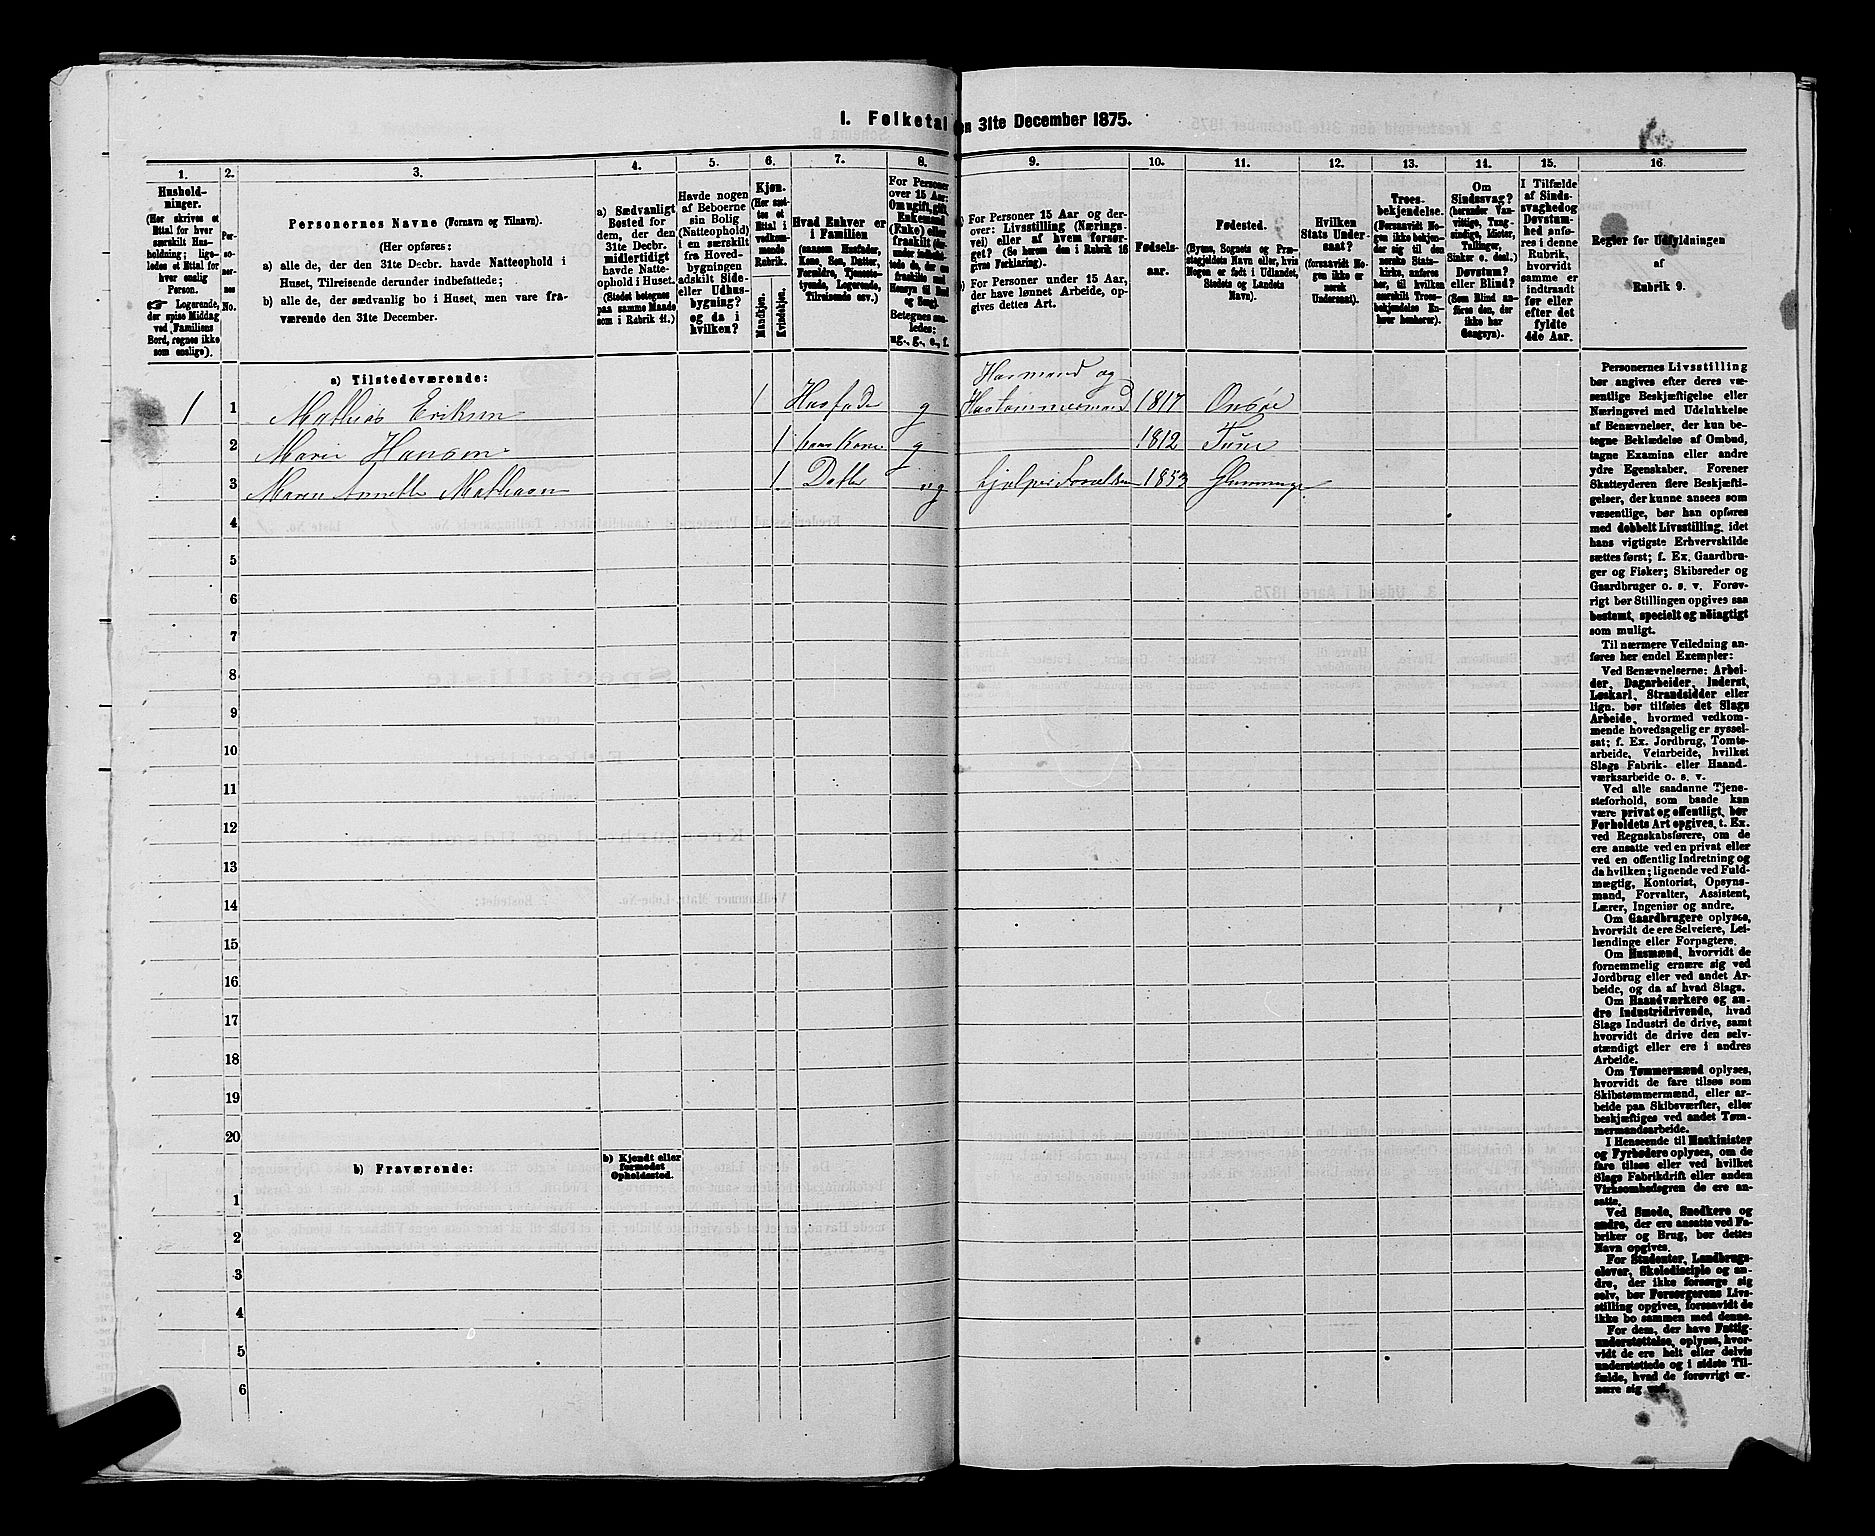 I. Folketal
en 31te December 1875.
1. 2. 3. 4. 5. 6. 7. 8. 9. 10. 11. 12. 13. 14. 15. 16.
Hushold-
ninger.
(Her skrives et
Ettal for hver
særskilt Hus-
holdning; lige-
ledes et Ettal for
hver enslig
Person.
☞ Logerende,
der spise Middag
ved Familiens
Bord, regnes ikke
som enslige).
Per-
so-
ner-
nes
No.
Personernes Navne (Fornavn og Tilnavn).
(Her opføres:
a) alle de, der den 31te Decbr. havde Natteophold i
Huset, Tilreisende derunder indbefattede;
b) alle de, der sædvanlig bo i Huset, men vare fra-
værende den 31te December.
a) Sædvanligt
Bosted for
dem, der den
31te Decbr.
midlertidigt
havde Natte-
ophold i Huset.
(Stedet betegnes
paa samme Maade
som i Rubrik 11.)
Havde nogen
af Beboerne
sin Bolig
(Natteophold)
i en særskilt
fra Hoved-
bygningen
adskilt Side-
eller Udhus-
bygning?
og da i
hvilken?
Kjøn.
(Her sæt-
tes et
Ettal i
vedkom-
mende
Rubrik.
Mandkjøn.
Kvindekjøn.
Hvad Enhver er
i Familien
(saasom Husfader,
Kone, Søn, Datter,
Forældre, Tjeneste-
tyende, Logerende,
Tilreisende osv.)
For Personer
over 15 Aar:
Om ugift, gift,
Enkemand
(Enke) eller
fraskilt
Betegnes saa-
ledes:
ug., g., e., f.
a) For Personer 15 Aar og der-
over: Livsstilling (Nærings-
vei) eller af hvem forsør-
get? (Se herom den i Rubrik 16
givne Forklaring).
b) For Personer under 15 Aar,
der have lønnet Arbeide, op-
gives dettes Art.
Fødsels-
aar.
Fødested.
(Byens, Sognets og Præ-
stegjeldets Navn eller, hvis
Nogen er født i Udlandet,
Stedets og Landets
Navn).
Hvilken
Stats Under-
saat?
(forsaavidt No-
gen ikke er
norsk
Undersaat).
Troes-
bekjendelse.
(Forsaavidt No-
gen ikke bekjen-
der sig til den
norske Stats-
kirke, anføres
her, til hvilken
særskilt Troes-
bekjendelse En-
hver henhører).
Om
Sindssvag?
(herunder Van-
vittige, Tung-
sindige, Idioter,
Tullinger,
Sinker o. desl.)
Døvstum?
eller Blind?
(Som Blind an-
føres den, der
ikke har
Gangsyn).
I Tilfælde
af Sinds-
svaghed og
Døvstum-
hed anfø-
res i denne
Rubrik,
hvorvidt
samme er
indtraadt
før eller
efter det
fyldte
4de Aar.
Regler for Udfyldningen
af
Rubrik 9.
a) Tilstedeværende:
Husmand og
1 1 Mathias Eriksen 1 Husfader g Hustømmermand 1817 Onsøe
2 Maria Hansen 1 hans Kone g 1812 Tune
3 Maren Annette Mathisen 1 Datter ug 1853 Glemminge
4
5
6
7
8
9
10
11
12
13
14
15
16
17
18
19
20
b) Fraværende:
b) Kjendt eller
formodet
Opholdssted.
1
2
3
4
5
6
Personernes Livsstilling
bør angives efter deres væ-
sentlige Beskjæftigelse eller
Næringsvei med Udelukkelse
af Benævnelser, der kun be-
tegne Beklædelse af Ombud,
tagne Examina eller andre
ydre Egenskaber. Forener
Skatteyderen flere Beskjæfti-
gelser, der kunne ansees som
væsentlige, bør han opføres
med dobbelt Livsstilling, idet
hans vigtigste Erhvervskilde
sættes først; f. Ex. Gaardbru-
ger og Fisker; Skibsreder og
Gaardbruger o. s. v. Forøv-
rigt bør Stillingen opgives saa
bestemt, specielt og nøiagtigt
som muligt.
Til nærmere Veiledning an-
føres her endel Exempler:
Ved Benævnelserne: Arbei-
der, Dagarbeider, Inderst,
Løskarl, Strandsidder eller
lign. bør tilføies det Slags
Arbeide, hvormed vedkom-
mende hovedsagelig er syssel-
sat; f. Ex. Jordbrug, Tomte-
arbeide, Veiarbeide, hvilket
Slags Fabrik- eller Haand-
værksarbeide o. s. v.
Ved alle saadanne Tjene-
steforhold, som baade kan
være privat og offentligt, bør
Forholdets Art opgives, t. Ex.
ved Regnskabsførere, om de
ere ansatte ved en privat eller
ved en offentlig Indretning og
da hvilken; lignende ved Fuld-
mægtig, Kontorist, Opsyns-
mand, Forvalter, Assistent,
Lærer, Ingeniør og andre.
Om Gaardbrugere oplyses,
hvorvidt de ere Selveiere, Lei-
lændinge eller Forpagtere.
Om Husmænd, hvorvidt de
fornemmelig ernære sig ved
Jordbrug eller ved andet Ar-
beide, og da af hvad Slags.
Om Haandværkere og an-
dre Industridrivende, hvad
Slags Industri de drive, samt
hvorvidt de drive den selv-
stændigt eller ere i andres
Arbeide.
Om Tømmermænd oplyses,
hvorvidt de fare tilsøs som
Skibstømmermænd, eller ar-
beide paa Skibsværfter, eller
beskjæftiges ved andet Tøm-
mermandsarbeide.
I Henseende til Maskinister
og Fyrbødere oplyses, om de
fare tilsøs eller ved hvilket
Slags Fabrikdrift eller anden
Virksomhedsgren de ere an-
satte.
Ved Smede, Snedkere og
andre, der ere ansatte ved Fa-
briker og Brug, bør dettes
Navn opgives.
For Studenter, Landbrugs-
elever, Skoledisciple og an-
dre, der ikke forsørge sig
selv, bør Forsørgerens Livs-
stilling opgives, forsaavidt de
ikke bo sammen med denne.
For dem, der have Fattig-
understøttelse, oplyses, hvor-
vidt de ere helt eller delvis
understøttede og i sidste Til-
fælde, hvad de forøvrigt er-
nære sig ved.